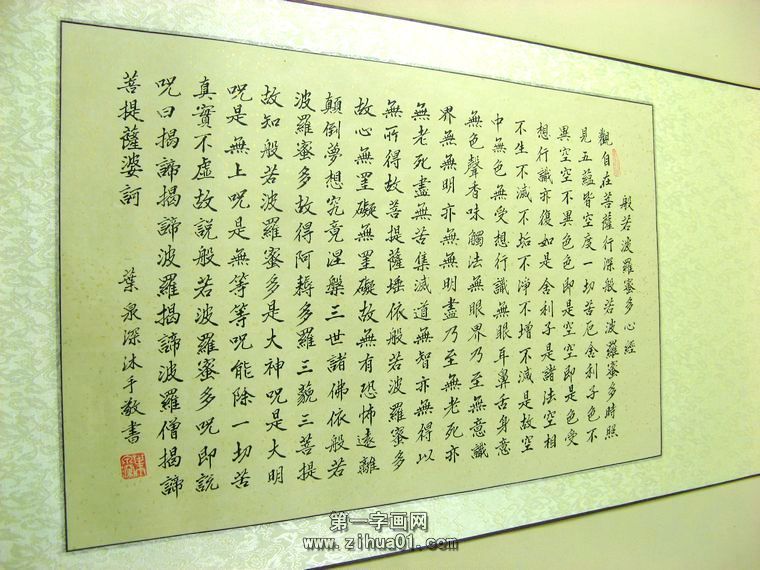 般若波羅蜜多心經
觀自在菩薩行深般若波羅蜜多時照
見五蘊皆空度一切苦厄舍利子色不
異空空不異色色即是空空即是色受
想行識亦復如是舍利子是諸法空相
不生不滅不垢不淨不增不減是故空
中無色無受想行識無眼耳鼻舌身意
無色聲香味觸法無眼界乃至無意識
界無無明亦無無明盡乃至無老死亦
無老死盡無苦集滅道無智亦無得以
無所得故菩提薩埵依般若波羅蜜多
故心無罣礙無罣礙故無有恐怖遠離
顛倒夢想究竟涅槃三世諸佛依般若
波羅蜜多故得阿耨多羅三藐三菩提
故知般若波羅蜜多是大神呪是大明
呪是無上呪是無等等呪能除一切苦
真實不虛故説般若波羅蜜多呪即説
呪曰揭諦揭諦波羅揭諦波羅僧揭諦
菩提薩婆訶 葉泉深沐手敬書
第一字画网
www.zihua01.com